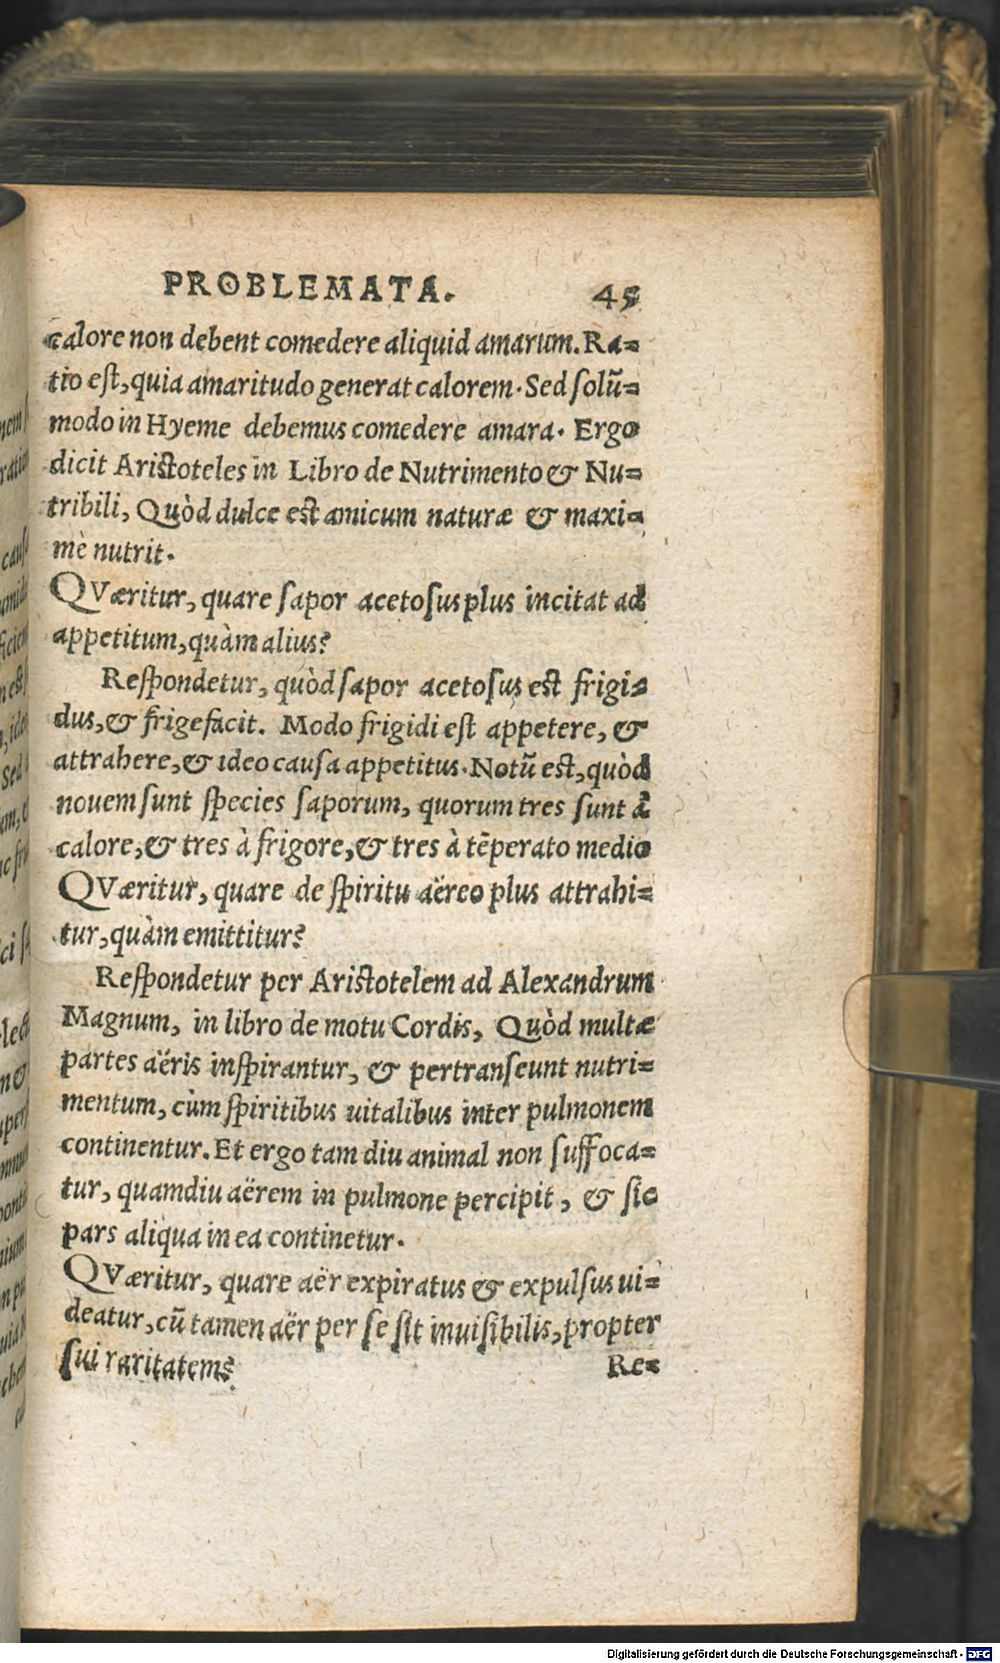 PROBLEMATA. 45
calore non debent comedere aliquid amarum. Ra-
tio eſt, quia amaritudo generat calorem. Sed ſolũ-
modo in Hyeme debemus comedere amara. Ergo
dicit Ariſtoteles in Libro de Nutrimento & Nu-
tribili, Quòd dulce eſt amicum naturæ & maxi-
mè nutrit.
QVæritur, quare ſapor acetoſus plus incitat ad
appetitum, quàm alius?
Reſpondetur, quòd ſapor acetoſus eſt frigi-
dus, & frigefacit. Modo frigidi eſt appetere, &
attrahere, & ideo cauſa appetitus. Notũ est, quòd
nouem ſunt ſpecies ſaporum, quorum tres ſunt à
calore, & tres à frigore, & tres à tẽperato medio
QVæritur, quare de ſpiritu aëreo plus attrahi-
tur, quàm emittitur?
Reſpondetur per Ariſtotelem ad Alexandrum
Magnum, in libro de motu Cordis, Quòd multæ
partes aëris inſpirantur, & pertranſeunt nutri-
mentum, cùm ſpiritibus uitalibus inter pulmonem
continentur. Et ergo tam diu animal non ſuffoca-
tur, quamdiu aërem in pulmone percipit, & ſic
pars aliqua in ea continetur.
QVæritur, quare aër expiratus & expulſus ui-
deatur, cũ tamen aër per ſe ſit inuiſibilis, propter
ſui raritatem?
Re-
Digitalisierung gefördert durch die Deutsche Forschungsgemeinschaft - DFG